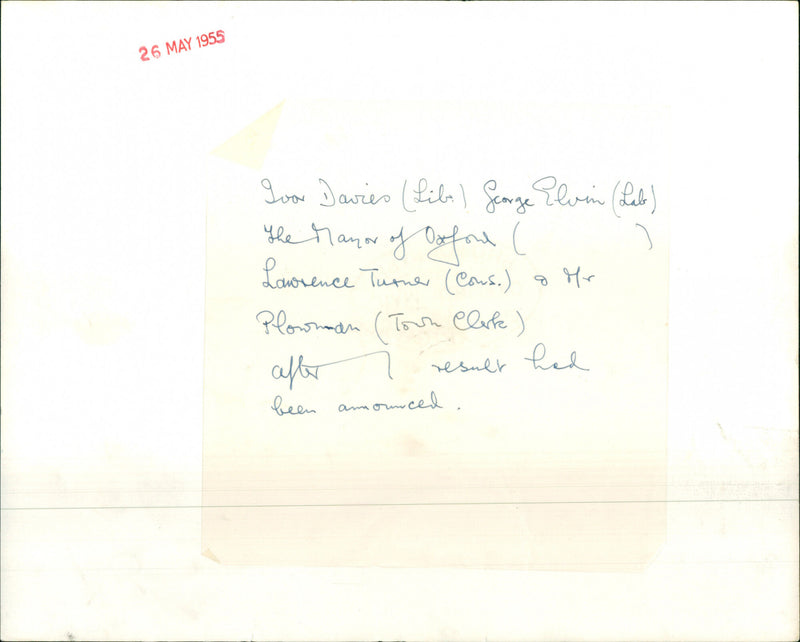 26 MAY 1955
Ivor Davies (Lib.) George Elvin (Lab)
The Mayor of Oxford (          )
Lawrence Turner (Cons.) & Mr
Plowman (Town Clerk)
after result had
been announced.